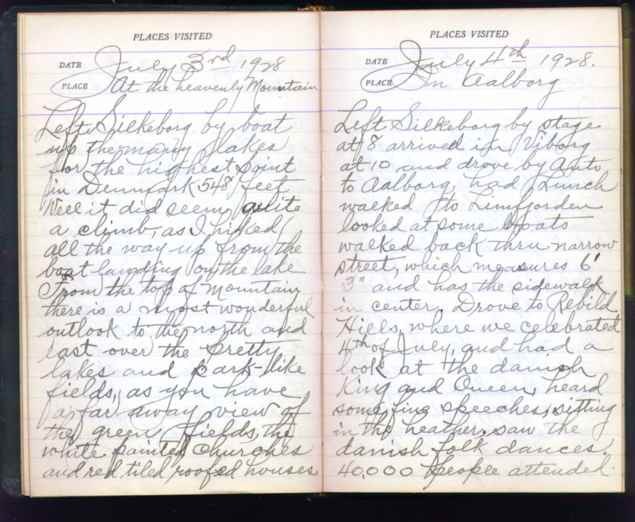 PLACES VISITED
DATE July 3rd 1928
PLACE At the heavenly Mountain
Left Silkeborg by boat
up the many lakes
for the highest point
in Denmark 548 feet
Well it did seem quite
a climb, as I hiked
all the way up from the
boat landing on the lake
From the top of Mountain
there is a most wonderful
outlook to the north and
east over the pretty
lakes and park-like
fields, as you have
a far away view of
the green fields, the
white painted churches
and red tiled roofed houses
PLACES VISITED
DATE July 4th 1928.
PLACE In Aalborg
Left Silkeborg by stage
at 8 arrived in Viborg
at 10 and drove by Auto
to Aalborg, had Lunch
walked to Limfjorden
looked at some boats
walked back thru narrow
street, which measures 6'
3" and has the sidewalk
in center, Drove to Rebild
Hills, where we celebrated
4th of July, and had a
look at the danish
King and Queen, heard
some fine speeches, sitting
in the heather, saw the
danish folk dances
40,000 people attended.